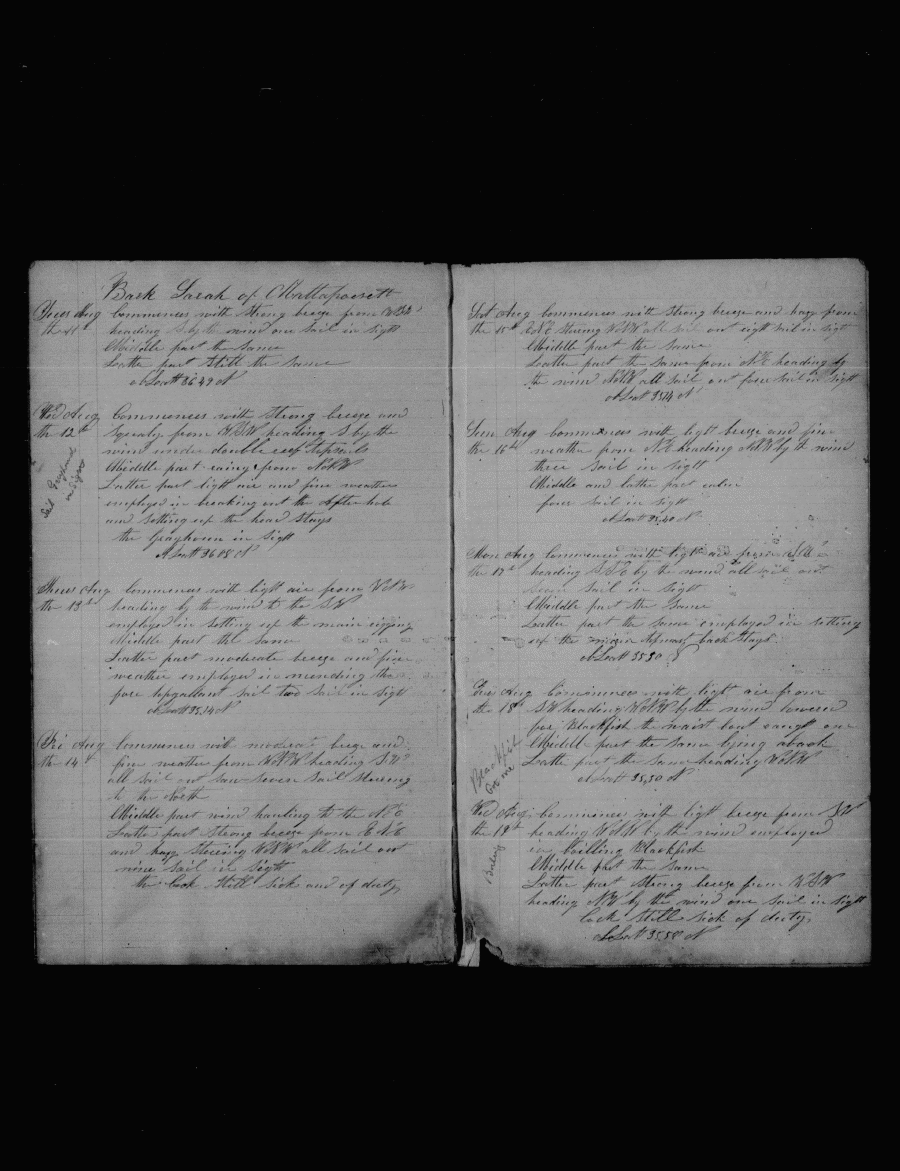 Bark Sarah of Mattapoisett
Tues Aug Commences with strong breeze from WSW
the 11th heading S by the wind one sail in sight
Middle part the same
Latter part still the same
Latt 36.49 N
Wed Aug Commences with strong breeze and
the 12th squaly from WSW heading S by the
wind under double reef topsails
Middle part rainy from NNW
Latter part light air and fine weather
employed in breaking out the After hole
and setting up the head stays
the Grayhoun in sight
Latt 36.08 N
Thurs Aug Commences with light air from WNW
the 13th heading by the wind to the SW
employed in setting up the main rigging
Middle part the same
Latter part moderate breeze and fine
weather employed in mending the
fore topgallant sail two sail in sight
Latt 35.14 N
Fri Aug Commences with moderate breeze and
the 14th fine weather from WNW heading SW
all sail out saw seven sail steering
to the North
Middle part wind hauling to the NE
Latter part strong breeze from ENE
and hazy steering WNW all sail out
nine sail in sight
the Cook still sick and of duty
Sat Aug Commences with strong breeze and hazy from
the 15th ENE steering WNW all sail out eight sail in sight
Middle part the same
Latter part the same from NE heading by
the wind NNW all sail out four sail in sight
Latt 35.14 N
Sun Aug Commences with light breeze and fine
the 16th weather from NE heading NNW by the wind
three sail in sight
Middle and latter part calm
four sail in sight
Latt 35.40 N
Mon Aug Commences with light air from SW
the 17th heading SSE by the wind all sail out
sail in sight
Middle part the same
Latter part the same employed in setting
up the main topmast back stays
Latt 35.30
Tues Aug Commences with light air from
the 18th SW heading WNW by the wind lowered
for Blackfish the waist boat caught one
Middle part the same lying aback
Latter part the same heading WNW
Latt 35.50 N
Blackfish
one
Wed Aug Commences with light breeze from SW
the 19th heading WNW by the wind employed
in boiling Blackfish
Middle part the same
Latter part strong breeze from WSW
heading NW by the wind one sail in sight
Cook still sick of duty
Latt 35.58 N
Boiling